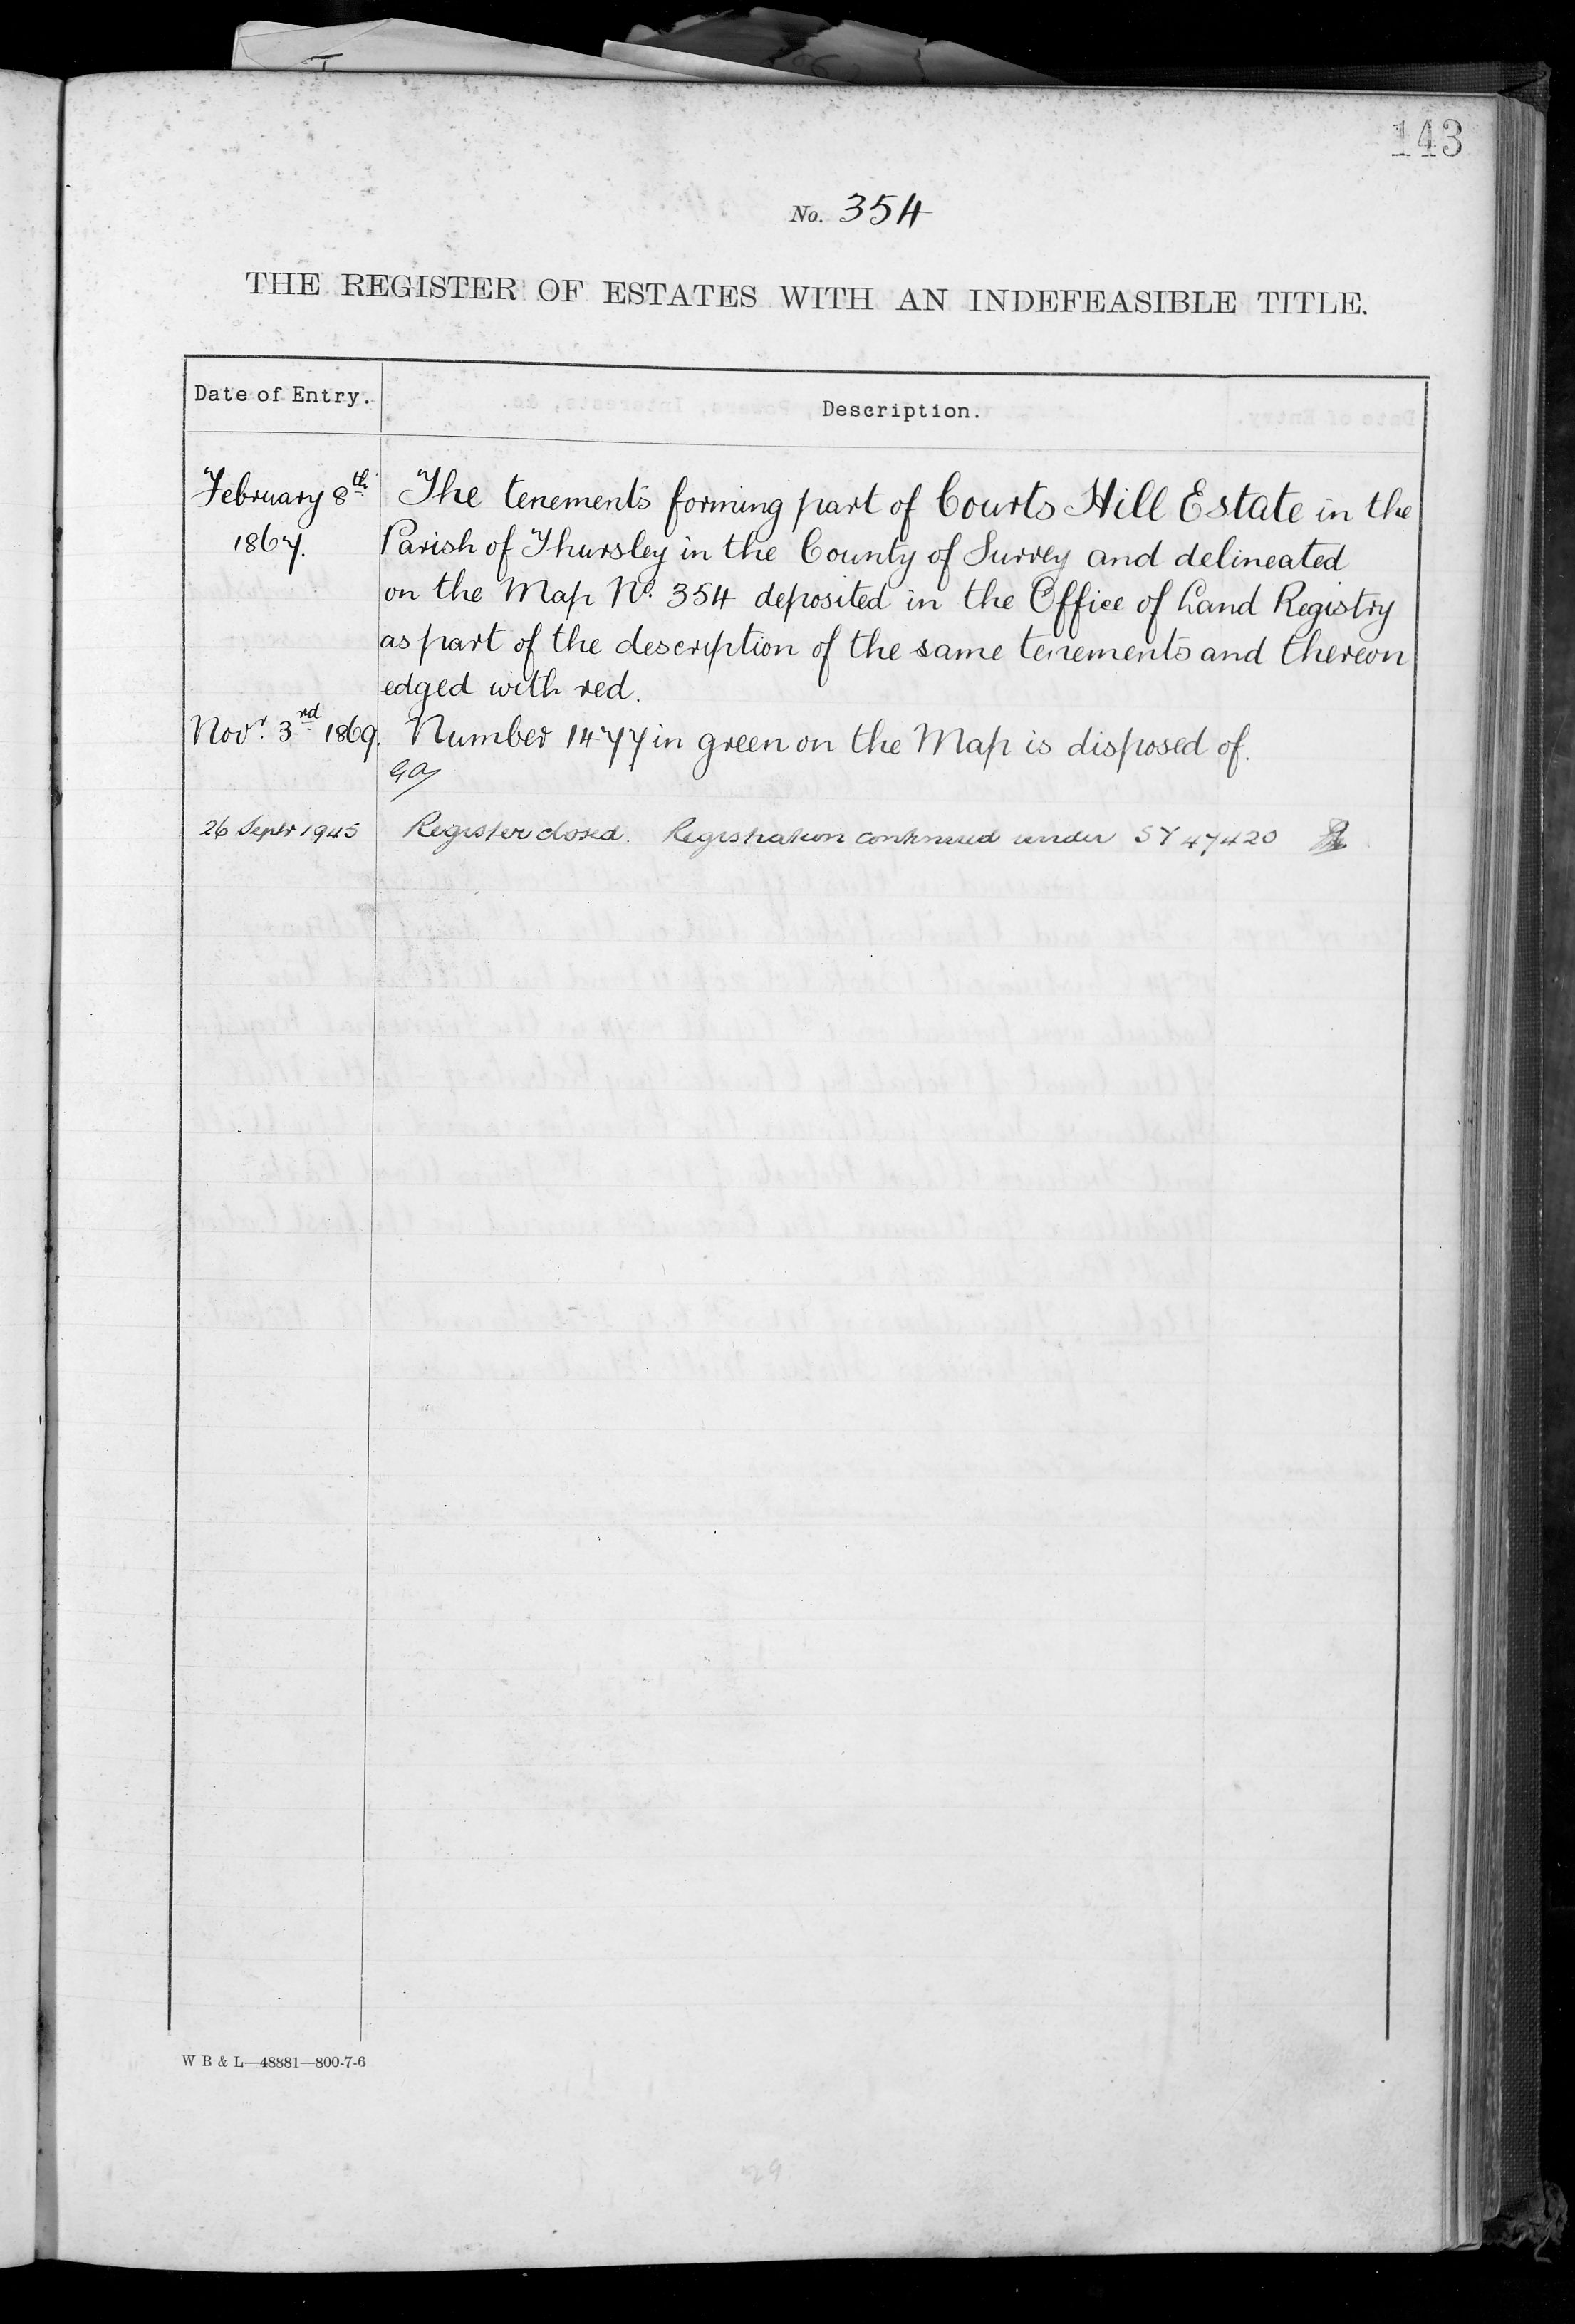 143
No. 354
THE REGISTER OF ESTATES WITH AN INDEFEASIBLE TITLE.
Date of Entry. Description.
February 8th The tenements forming part of Courts Hill Estate in the
1867. Parish of Thursley in the County of Surrey and delineated
on the Map No. 354 deposited in the Office of Land Registry
as part of the description of the same tenements and thereon
edged with red.
Novr. 3rd 1869. Number 1477 in green on the Map is disposed of.
26 Septr 1945 Register closed. Registration continued under SY 47420
W B & L—48881—800-7-6